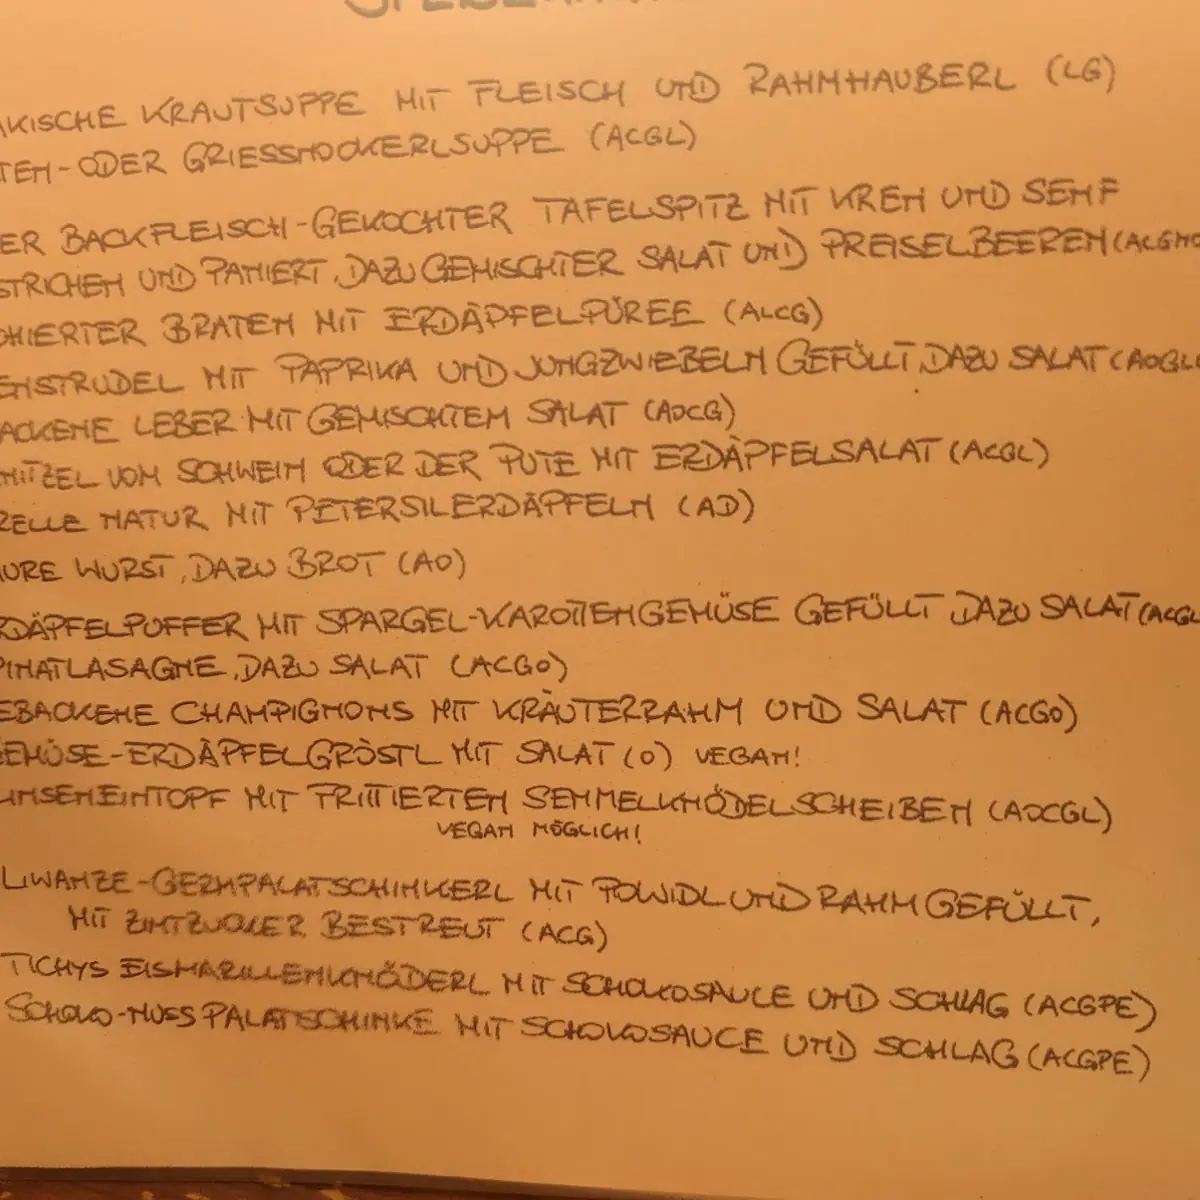 AKISCHE KRAUTSUPPE MIT FLEISCH UND RAHMHAUBERL (LG)
TEN-ODER GRIESSNOCKERLSUPPE (ACGL)
ER BACKFLEISCH-GEKOCHTER TAFELSPITZ MIT KREN UND SENF
STRICHEN UND PANIERT, DAZU GEMISCHTER SALAT UND PREISELBEEREN (ALGMO
CHIERTER BRATEN MIT ERDÄPFELPÜREE (ALCG)
ENSTRUDEL MIT PAPRIKA UND JUNGZWIEBELN GEFÜLLT, DAZU SALAT (AOGL
ACKENE LEBER MIT GEMISCHTEM SALAT (AOCG)
NITZEL VOM SCHWEIN ODER DER PUTE MIT ERDÄPFELSALAT (ACGL)
RELLE NATUR MIT PETERSILERDÄPFELN (AD)
AURE WURST, DAZU BROT (AO)
RDÄPFELPUFFER MIT SPARGEL-KAROTTENGEMÜSE GEFÜLLT, DAZU SALAT (ACGL
PINATLASAGNE, DAZU SALAT (ACGO)
EBACKENE CHAMPIGNONS MIT KRÄUTERRAHM UND SALAT (ACGO)
EMÜSE-ERDÄPFELGRÖSTL MIT SALAT (O) VEGAN!
LINSENEINTOPF MIT FRITTIERTEN SEMMELKNÖDELSCHEIBEN (AOCGL)
VEGAN MÖGLICH!
LIWANZE-GERMPALATSCHINKERL MIT POWIDL UND RAHM GEFÜLLT,
MIT ZIMTZUCKER BESTREUT (ACG)
TICHYS EISMARILLENKNÖDERL MIT SCHOKOSAUCE UND SCHLAG (ACGPE)
SCHOKO-NUSS PALATSCHINKE MIT SCHOKOSAUCE UND SCHLAG (ACGPE)